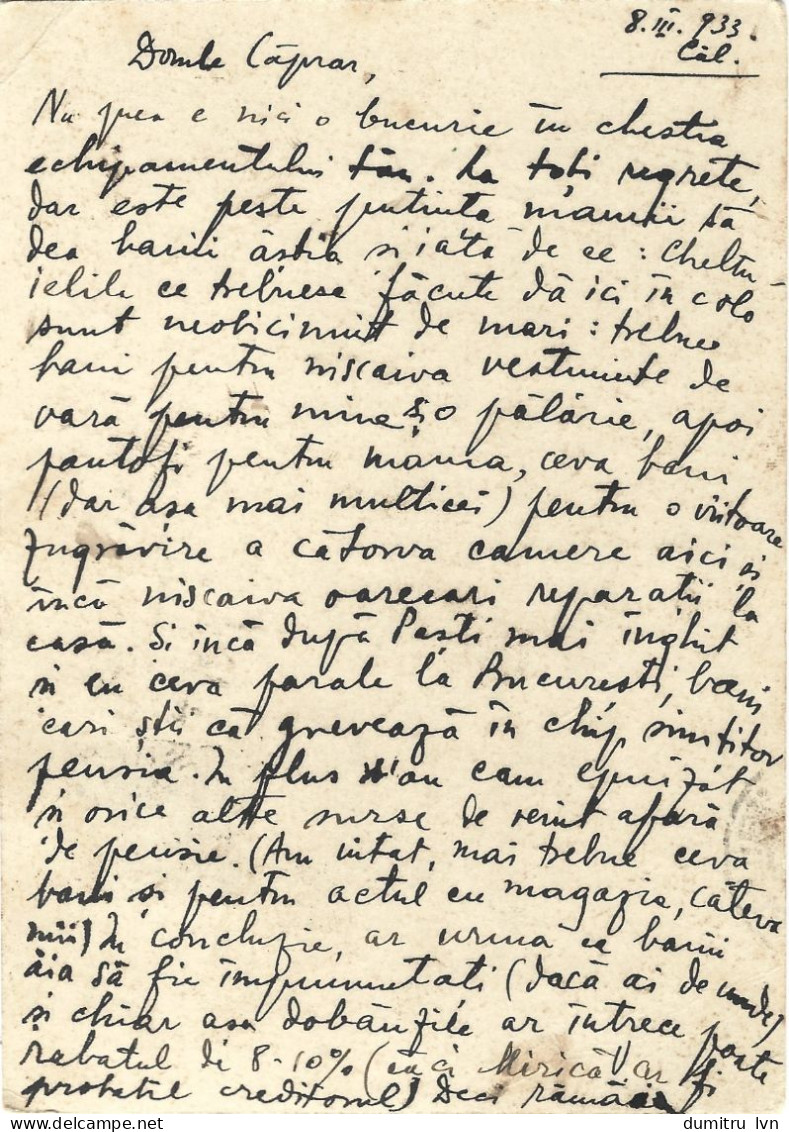 8.III.933.
Căl.
Domle Căprar,
Nu prea e nici o bucurie în chestia
echipamentului tău. Cu toți regrete,
dar este peste putința mamii să
dea banii ăstia si iată de ce: Cheltu-
ielile ce trebuesc făcute dă ici în colo
sunt neobicinuit de mari: trebue
bani pentru niscaiva vestminte de
vară pentru mine & o pălărie, apoi
pantofi pentru mama, ceva bani
(dar asa mai multicei) pentru o viitoare
zugrăvire a câtorva camere aici si
încă niscaiva oarecari reparatii la
casă. Si încă după Pasti mai înghit
si eu ceva parale la Bucuresti, bani
cari știi că grevează în chip simtitor
pensia. In plus s'au cam epuizat
si orice alte surse de venit afară
de pensie. (Am uitat, mai trebue ceva
bani și pentru actul cu magazia, câteva
mii) In concluzie, ar urma ca banii
ăia să fie împrumutati (dacă ai de unde)
si chiar asa dobânzile ar întrece poate
rabatul di 8-10% (căci Mirică ar fi
probabil creditorul) Deci rămâne
dumitru lvn